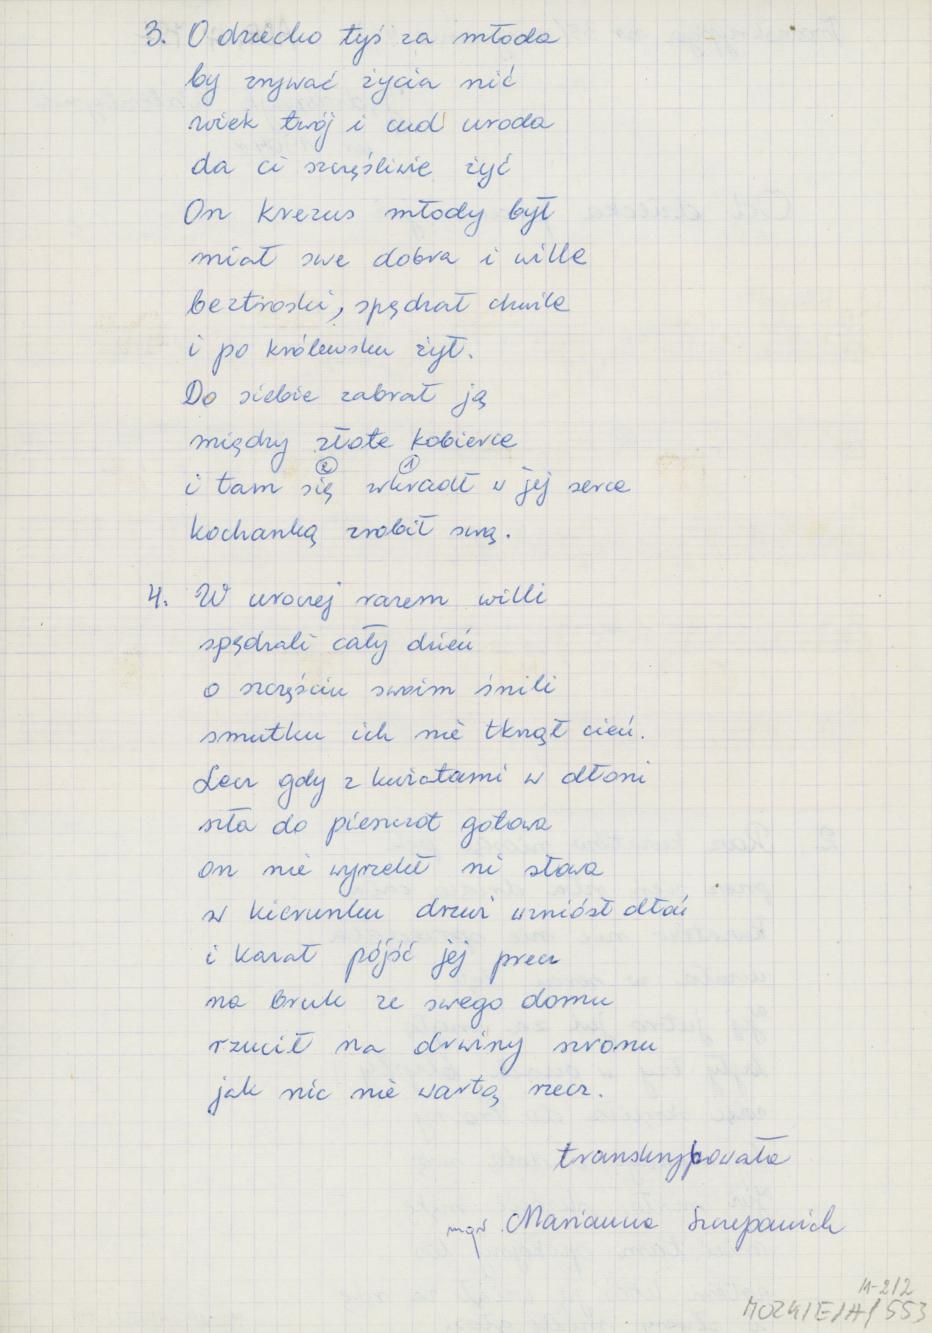 3. O dziecko tyś za młoda
by zrywać życia nić
wiek twój i cud uroda
da ci szczęśliwie żyć
On krezus młody był
miał swe dobra i wille
beztroski, spędzał chwile
i po królewsku żył.
Do siebie zabrał ją
między złote kobierce
② ①
i tam się wkradł w jej serce
kochanką zrobił swą.
4. W uroczej razem willi
spędzali cały dzień
o szczęściu swoim śnili
smutku ich nie tknął cień.
Lecz gdy z kwiatami w dłoni
szła do pieszczot gotowa
on nie wyrzekł ni słowa
w kierunku drzwi wzniósł dłoń
i kazał pójść jej precz
na bruk ze swego domu
rzucił na drwiny sromu
jak nic nie wartą rzecz.
transkrybowała
mgr. Marianna Szczepanich
M-212
MOZK/E/A/553